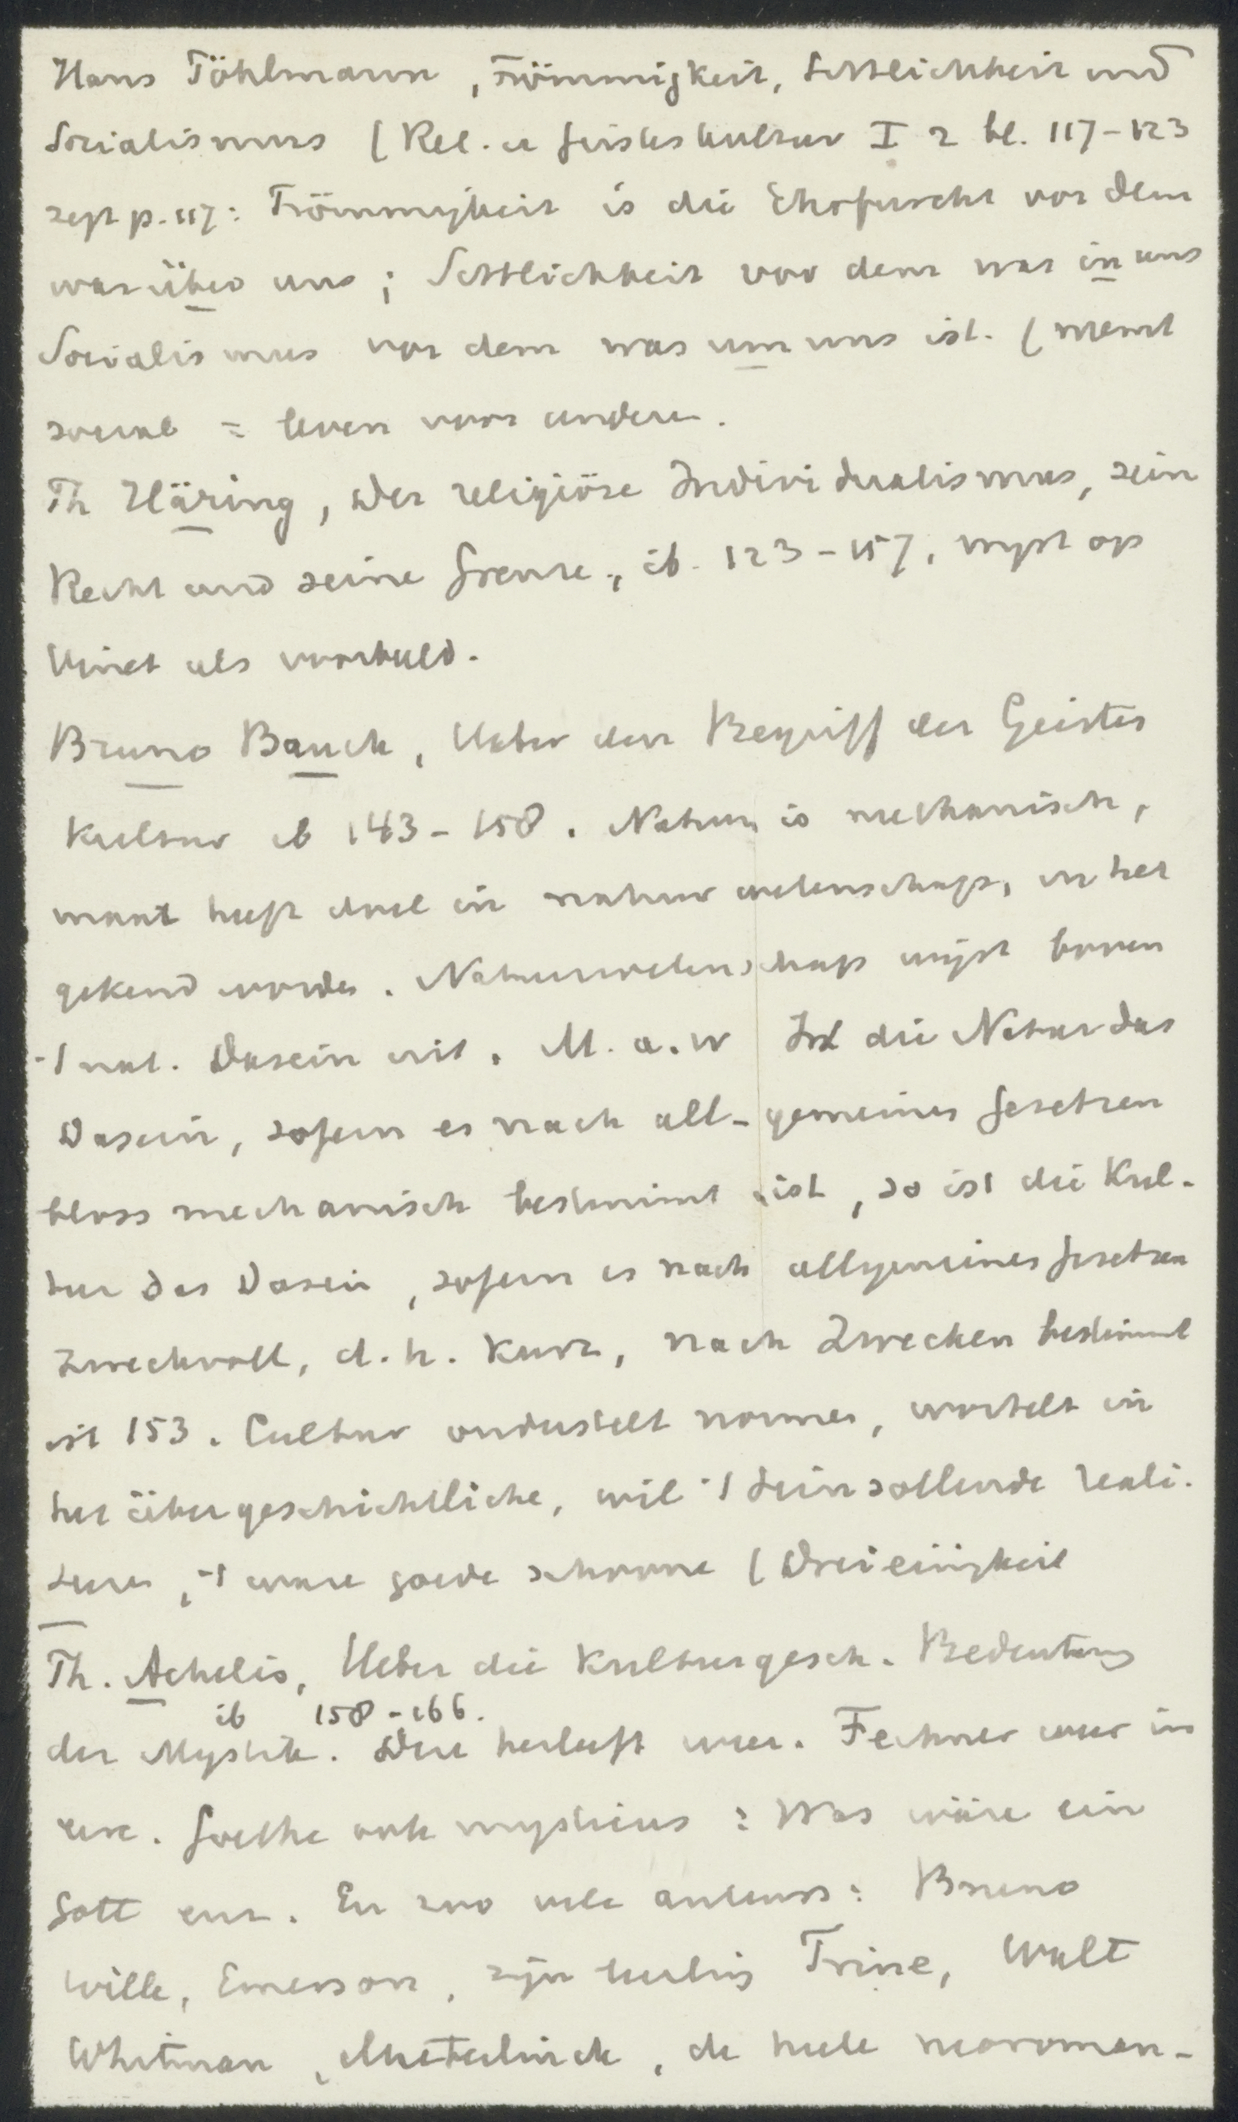 Hans Pöhlmann, Frömmigkeit, Sittlichkeit und
Socialismus (Rel. u Geisteskultur I 2 bl. 117-123
zegt p. 117: Frömmigkeit is die Ehrfurcht vor dem
was über uns; Sittlichkeit vor dem was in uns
Socialismus vor dem was um uns ist. (Mensch
sociaal = leven voor andere.
Th Häring, Der religiöse Individualismus, sein
Recht und seine Grenze, ib. 123-157, wijst op
Vinet als voorbeeld.
Bruno Bauch, Ueber den Begriff der Geistes
kultur ib 143-158. Natuur is mechanisch,
maar heeft doel in natuurwetenschap, in het
gekend worden. Natuurwetenschap wijst boven
't nat. Dasein uit. M. a. w Ist die Natur das
Dasein, sofern es nach all-gemeinen Gesetzen
bloss mechanisch bestimmt ist, so ist die Kul-
tur das Dasein, sofern es nach allgemeinen Gesetzen
zweckvoll, d. h. kurz, nach Zwecken bestimmt
ist 153. Cultuur onderstelt normen, wortelt in
het übergeschichtliche, wil 't Seinsollende reali-
seren, 't ware goede schoone (Dreieinigkeit
Th. Achelis, Ueber die Kulturgesch. Bedeutung
der Mystik. ib 158-166. Die herleeft weer. Fechner was er
een. Goethe ook mysticus: Was wäre ein
Gott enz. En zoo vele auteurs: Bruno
Wille, Emerson, zijn leerling Trine, Walt
Whitman, Maeterlinck, de heele neoroman-